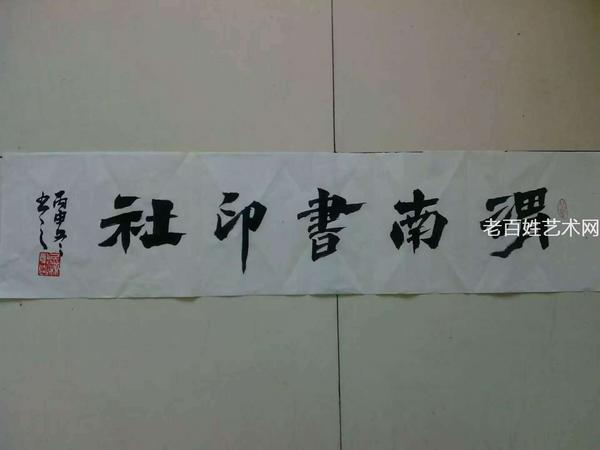 渭南書印社
丙申
老百姓艺术网